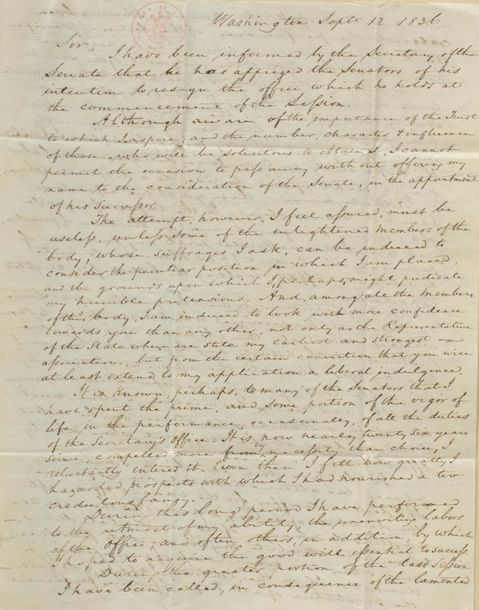 Washington Septr. 12 1836
Sir,
I have been informed by the Secretary of the
Senate that he has apprized the Senators of his
intention to resign the office which he holds at
the commencement of the Session.
Although aware of the importance of the Trust
to which I aspire, and the number, character & influence
of those, who will be solicitous to obtain it, I cannot
permit the occasion to pass away without offering my
name to the consideration of the Senate, in the appointment
of his Successor.
The attempt, however, I feel assured, must be
useless, unless some of the enlightened members of the
body, whose suffrages I ask, can be induced to
consider the peculiar position in which I am placed,
and the grounds upon which I, perhaps, might predicate
my humble pretensions. And, among all the Members
of this body, I am induced to look with more confidence
towards you than any other, not only as the Representative
of the State where are still my earliest and strongest
associations, but from the certain conviction that you will
at least extend to my application a liberal indulgence.
It is known, perhaps, to many of the Senators that I
have spent the prime, and some portion of the vigor of
life in the performance, occasionally, of all the duties
of the Secretary's Office. It is now nearly twenty six years
since, compelled more from necessity than choice, I
reluctantly entered it. Even then I felt how greatly I
hazarded prospects with which I had nourished a too
credulous fancy.
During this long period I have performed
to the utmost of my ability the unremitting labors
of the Office, and often others, in addition by which
I hoped to acquire the good will essential to success.
During the greater portion of the last session
I have been called, in consequence of the lamented